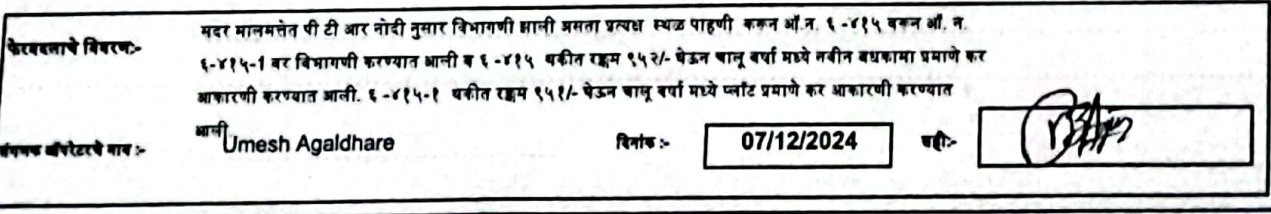 सदर मालमत्तेत पी टी आर नोदी नुसार विभागणी झाली असता प्रत्यक्ष स्थळ पाहणी करून ऑ.न. ६-४१५ वरून ऑ. न.
फेरबदलाचे विवरण:-
६-४१५-1 वर विभागणी करण्यात आली व ६-४१५ थकीत रक्कम ९५२/- घेऊन चालू वर्षा मध्ये नवीन बधकामा प्रमाणे कर
आकारणी करण्यात आली. ६-४१५-१ थकीत रक्कम ९५१/- घेऊन चालू वर्षा मध्ये प्लॉट प्रमाणे कर आकारणी करण्यात
आली
संगणक ऑपरेटरचे नाव :- Umesh Agaldhare दिनांक :- 07/12/2024 सही:-